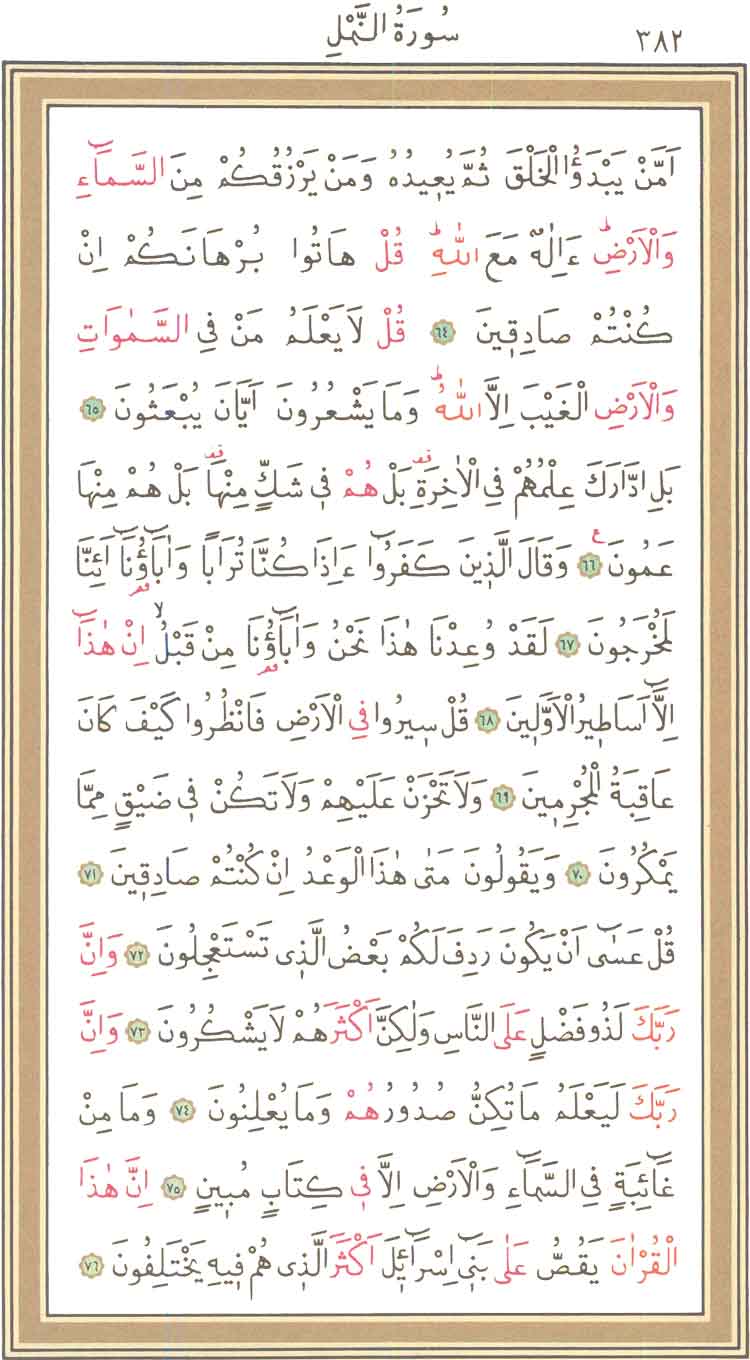 سُورَةُ النَّمْلِ ٣٨٢
اَمَّنْ يَبْدَؤُا الْخَلْقَ ثُمَّ يُعٖيدُهُ وَمَنْ يَرْزُقُكُمْ مِنَ السَّمَٓاءِ
وَالْاَرْضِؕ ءَاِلٰهٌ مَعَ اللّٰهِؕ قُلْ هَاتُوا بُرْهَانَكُمْ اِنْ
كُنْتُمْ صَادِقٖينَ ٦٤ قُلْ لَا يَعْلَمُ مَنْ فِي السَّمٰوَاتِ
وَالْاَرْضِ الْغَيْبَ اِلَّا اللّٰهُؕ وَمَا يَشْعُرُونَ اَيَّانَ يُبْعَثُونَ ٦٥
بَلِ ادَّارَكَ عِلْمُهُمْ فِي الْاٰخِرَةِ بَلْ هُمْ فٖي شَكٍّ مِنْهَا بَلْ هُمْ مِنْهَا
عَمُونَ ٦٦ وَقَالَ الَّذٖينَ كَفَرُٓوا ءَاِذَا كُنَّا تُرَابًا وَاٰبَٓاؤُنَٓا اَئِنَّا
لَمُخْرَجُونَ ٦٧ لَقَدْ وُعِدْنَا هٰذَا نَحْنُ وَاٰبَٓاؤُنَا مِنْ قَبْلُۙ اِنْ هٰذَٓا
اِلَّٓا اَسَاطٖيرُ الْاَوَّلٖينَ ٦٨ قُلْ سٖيرُوا فِي الْاَرْضِ فَانْظُرُوا كَيْفَ كَانَ
عَاقِبَةُ الْمُجْرِمٖينَ ٦٩ وَلَا تَحْزَنْ عَلَيْهِمْ وَلَا تَكُنْ فٖي ضَيْقٍ مِمَّا
يَمْكُرُونَ ٧٠ وَيَقُولُونَ مَتٰى هٰذَا الْوَعْدُ اِنْ كُنْتُمْ صَادِقٖينَ ٧١
قُلْ عَسٰٓى اَنْ يَكُونَ رَدِفَ لَكُمْ بَعْضُ الَّذٖي تَسْتَعْجِلُونَ ٧٢ وَاِنَّ
رَبَّكَ لَذُو فَضْلٍ عَلَى النَّاسِ وَلٰكِنَّ اَكْثَرَهُمْ لَا يَشْكُرُونَ ٧٣ وَاِنَّ
رَبَّكَ لَيَعْلَمُ مَا تُكِنُّ صُدُورُهُمْ وَمَا يُعْلِنُونَ ٧٤ وَمَا مِنْ
غَٓائِبَةٍ فِي السَّمَٓاءِ وَالْاَرْضِ اِلَّا فٖي كِتَابٍ مُبٖينٍ ٧٥ اِنَّ هٰذَا
الْقُرْاٰنَ يَقُصُّ عَلٰى بَنٖٓي اِسْرَٓائٖلَ اَكْثَرَ الَّذٖي هُمْ فٖيهِ يَخْتَلِفُونَ ٧٦